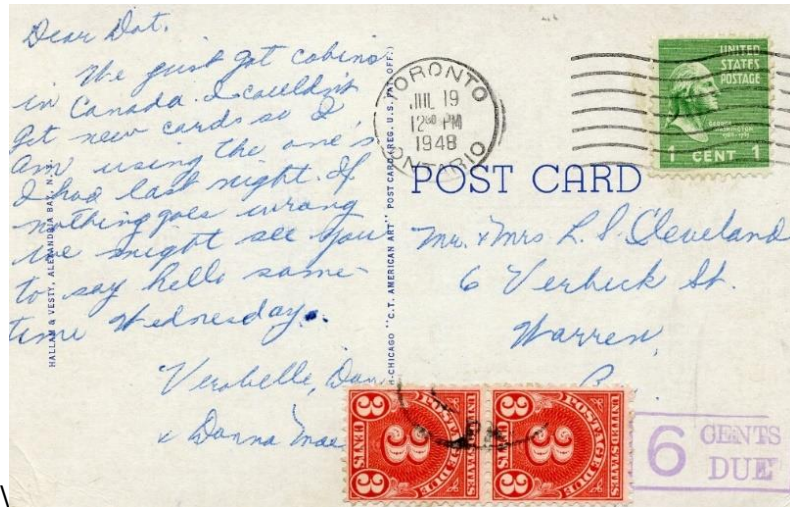 Dear Dot.
We just got cabins
in Canada. I couldn't
get new cards so I
am using the one's
I had last night. If
nothing goes wrong
we might see you
to say hello some-
time Wednesday.
Verabelle, Dan
& Donna Mae
HALLAM & VESTY, ALEXANDRIA BAY, N.Y.
-CHICAGO "C.T. AMERICAN ART" POST CARD (REG. U.S. PAT. OFF.)
TORONTO
JUL 19
12 PM
1948
ONTARIO
UNITED
STATES
POSTAGE
1 CENT 1
POST CARD
Mr. & Mrs L. S. Cleveland
6 Verbeck St.
Warren,
3 CENTS 3
POSTAGE DUE
UNITED STATES
3 CENTS 3
POSTAGE DUE
UNITED STATES
6 CENTS
DUE